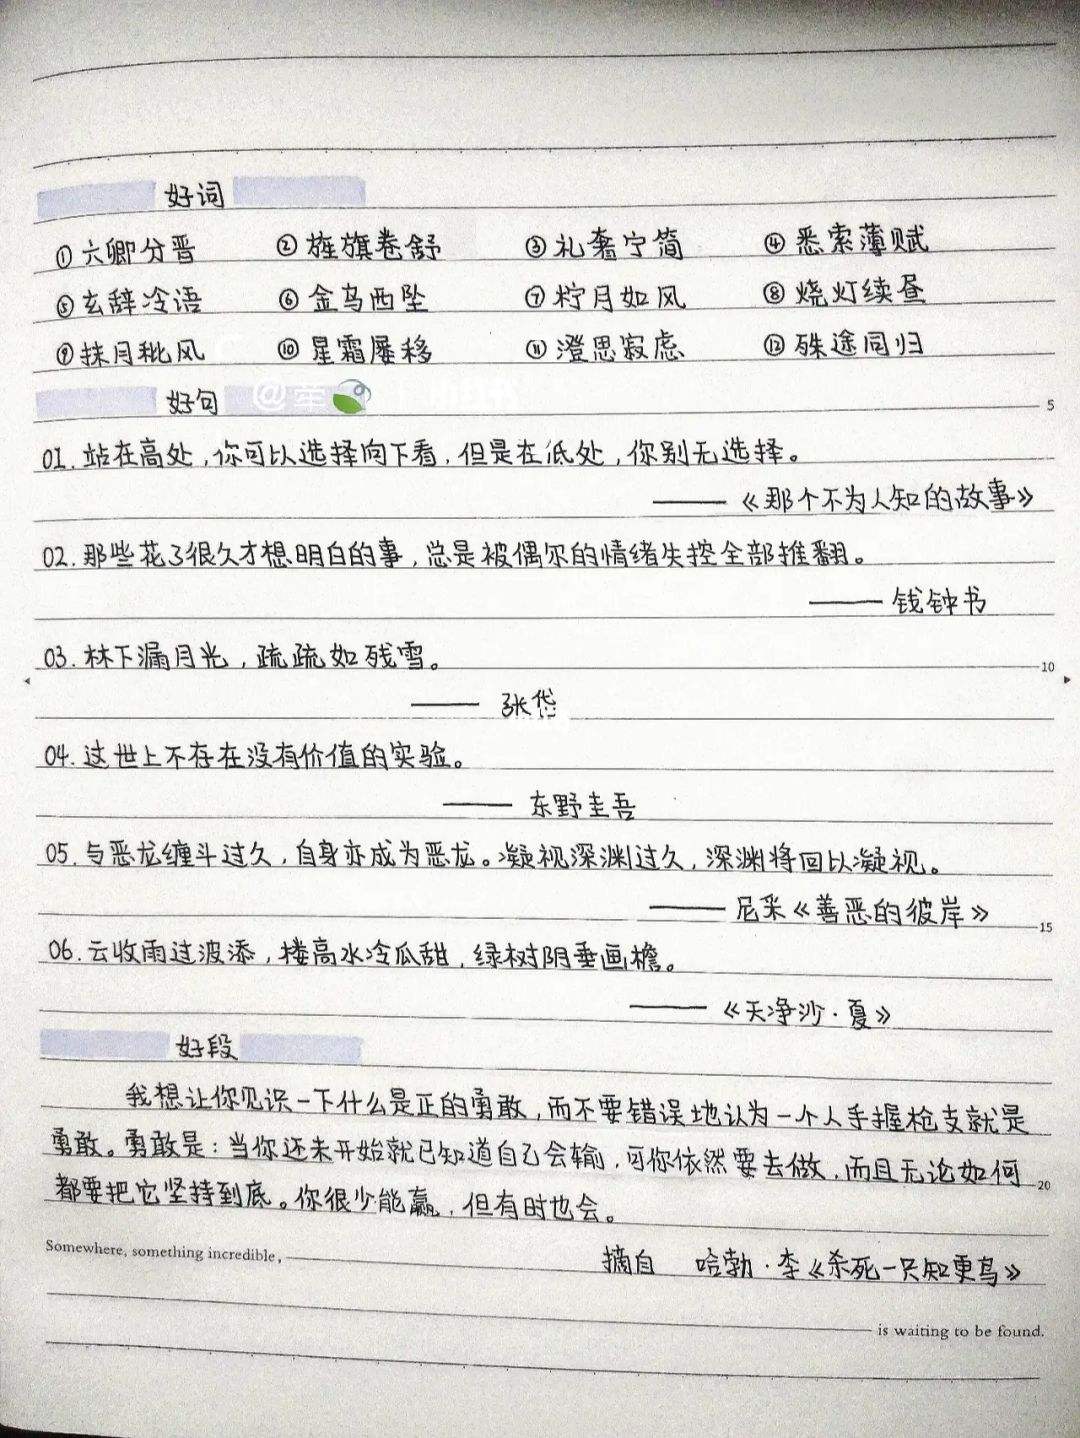 好词
①六卿分晋 ②旌旗卷舒 ③礼奢宁简 ④悉索薄赋
⑤玄辞冷语 ⑥金乌西坠 ⑦柠月如风 ⑧烧灯续昼
⑨抹月秕风 ⑩星霜屡移 ⑪澄思寂虑 ⑫殊途同归
好句
5
01.站在高处,你可以选择向下看,但是在低处,你别无选择。
——《那个不为人知的故事》
02.那些花了很久才想明白的事,总是被偶尔的情绪失控全部推翻。
——钱钟书
03.林下漏月光,疏疏如残雪。
10
——张岱
04.这世上不存在没有价值的实验。
——东野圭吾
05.与恶龙缠斗过久,自身亦成为恶龙。凝视深渊过久,深渊将回以凝视。
——尼采《善恶的彼岸》
15
06.云收雨过波添,楼高水冷瓜甜,绿树阴垂画檐。
——《天净沙·夏》
好段
我想让你见识一下什么是正的勇敢,而不要错误地认为一个人手握枪支就是
勇敢。勇敢是:当你还未开始就已知道自己会输,可你依然要去做,而且无论如何
20
都要把它坚持到底。你很少能赢,但有时也会。
Somewhere, something incredible,
摘自 哈勃·李《杀死一只知更鸟》
is waiting to be found.